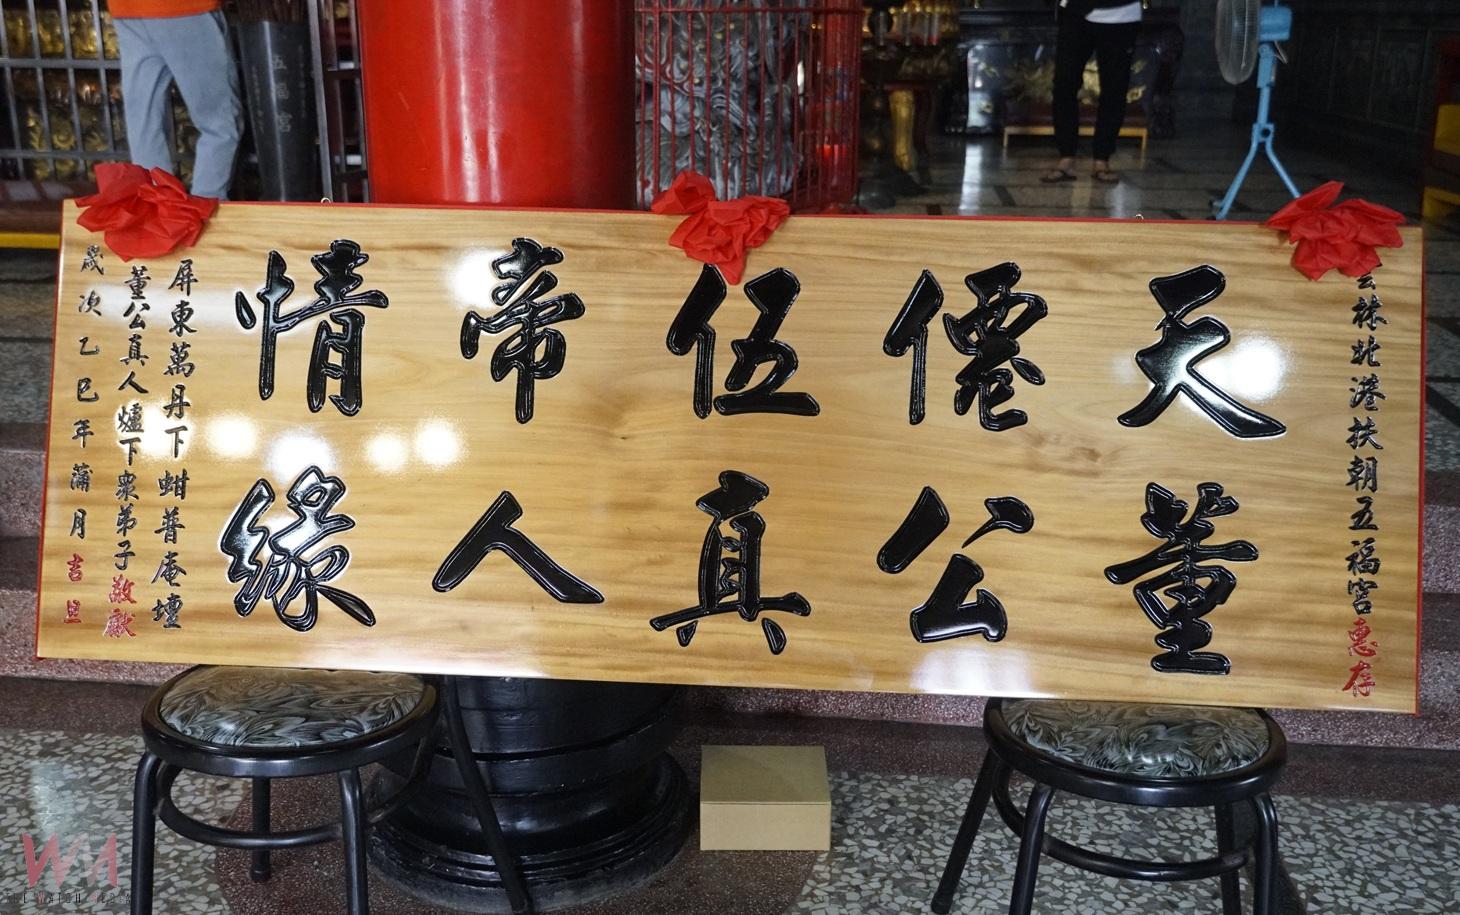 雲林北港扶朝五福宮惠存
天僊伍帝情
董公真人緣
屏東萬丹下蚶普庵壇
董公真人爐下眾弟子敬獻
歲次乙巳年蒲月吉旦
五福宮
WA
THE WATCH MEDIA